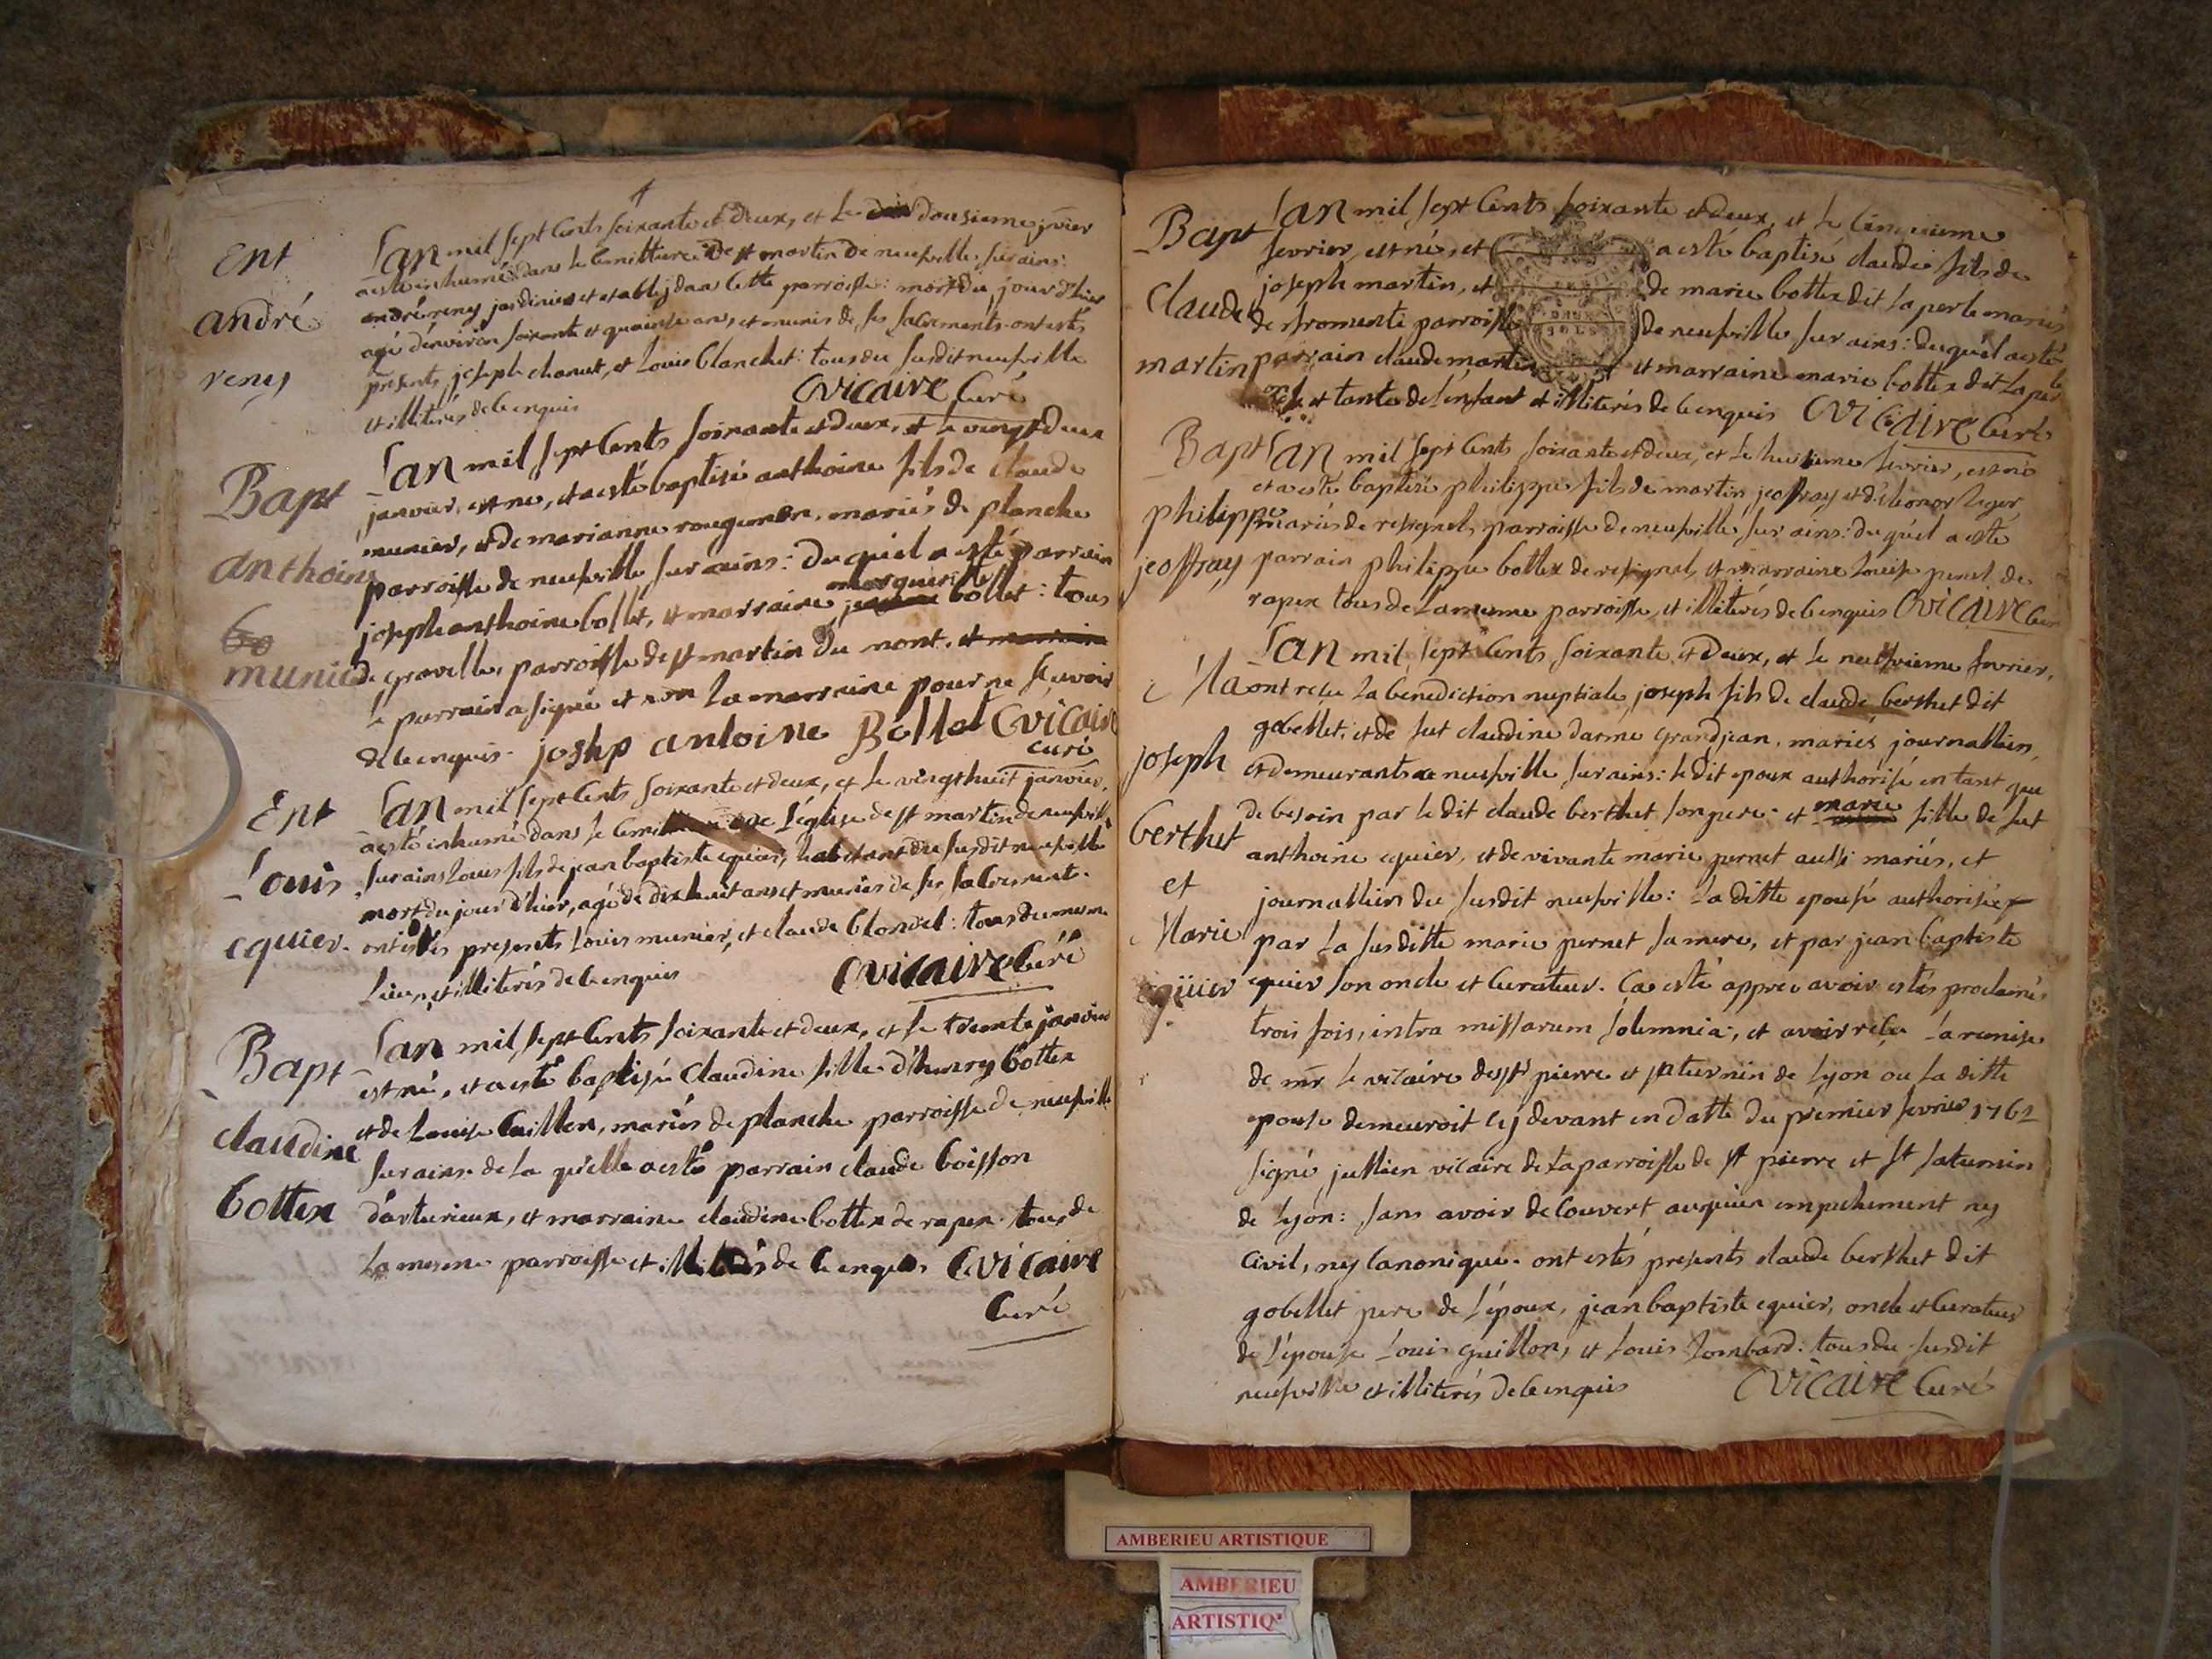 1
Ent
andré
reny
L'an mil sept cents soixante et deux, et le dousieme jvier
a esté inhumé dans le cemitture de st martin de neufville sur ains:
andré reny jardinier et establ j dans cette parroisse: mort du jour d'hier
agé d'environ soixante et quainse ans, et munis de ses sacrements. ont estés
presents joseph chanut, et Louis blanchet: tous du susdit neufville
et illiterés de ce enquis Cvicaire Curé
Bapt
anthoine
bo
munier
L'an mil sept cents soixante et deux, et le vingt deux
janvier, est né, et a esté baptisé anthoine fils de claude
munier, et de marianne rougemon, mariés de planche
parroisse de neufville sur ains: du quel a esté parrain
joseph anthoine bollet, et marraine marguerite bollet: tous
de gravelle, parroisse de st martin du mont, et marraine
le parrain a signé et non la marraine pour ne scavoir
de ce enquis. joshp antoine Bollet Cvicaire
curé
Ent
Louis
equier.
L'an mil sept cents soixante et deux, et le vingt huit janvier,
a esté inhumé dans le cemi l'église de st martin de neufville
sur ains Louis fils de jean baptiste equier, habitant du susdit neufville
mort du jour d'hier, agé de dix huit ans et munis de ses sacrements.
ont estés presents Louis munier, et claude blondel: tous du mesme
Lieu, et illiterés de ce enquis Cvicaire Curé
Bapt
claudine
bottex
L'an mil sept cents soixante et deux, et le trente janvier
est né, et a esté baptisée claudine fille d'henry bottex
et de Louise Caillen, mariés de planche parroisse de neufville
sur ains. de la quelle a esté parrain claude boisson
d'arturieux, et marraine claudine bottex de rapex. tous de
la mesme parroisse et illiterés de ce enquis Cvicaire
Curé
Bapt
Claude
martin
L'an mil sept cents soixante et deux, et le cinquieme
fevrier, est né, et a esté baptisé claude fils de
joseph martin, et de marie bottex dit la perle mariés
de stromente parroisse de neufville sur ains: duquel a esté
parrain claude martin et marraine marie bottex dit la perle
oncle et tante de l'enfant et illiterés de ce enquis Cvicaire Curé
Bapt
philippe
jeoffray
L'an mil sept cents soixante et deux, et le huitieme fevrier, est né
et a esté baptisé philippe fils de martin jeoffray et d'éleonor leger
mariés de resignel, parroisse de neufville sur ains: du quel a esté
parrain philippe bottex de resignel, et marraine Louise penel de
rapex tous de la mesme parroisse, et illiterés de ce enquis Cvicaire Cur
Ma
joseph
berthet
et
Marie
equier
L'an mil sept cents soixante et deux, et le neufvieme fevrier,
ont reçu la benediction nuptiale, joseph fils de claude berthet dit
gobellet, et de fut claudine darme grandjean, mariés journalliers,
et demeurants a neufville sur ains: le dit epoux authorisé en tant que
de besoin par le dit claude berthet son pere. et marie fille de fut
anthoine equier, et de vivante marie pernet aussi mariés, et
journalliers du susdit neufville: la ditte epouse authorisée
par la susditte marie pernet sa mere, et par jean baptiste
equier son oncle et curateur. Ca esté apprec avoir estés proclamés
trois fois, intra missarum solemnia, et avoir reçu la remise
de mr le vicaire de st pierre et saturnin de lyon ou la ditte
epouse demeuroit cy devant en datte du premier fevrier 1762
signé jullien vicaire de la parroisse de st pierre et st saturnin
de lyon: sans avoir decouvert auquun empechement ny
civil, ny canonique. ont estés presents claude berthet dit
gobellet pere de l'époux, jean baptiste equier, oncle et curateur
de l'épouse Louis guillon, et Louis Lombard: tous du susdit
neufville et illiterés de ce enquis Cvicaire Curé
AMBERIEU ARTISTIQUE
AMBERIEU
ARTISTIQ